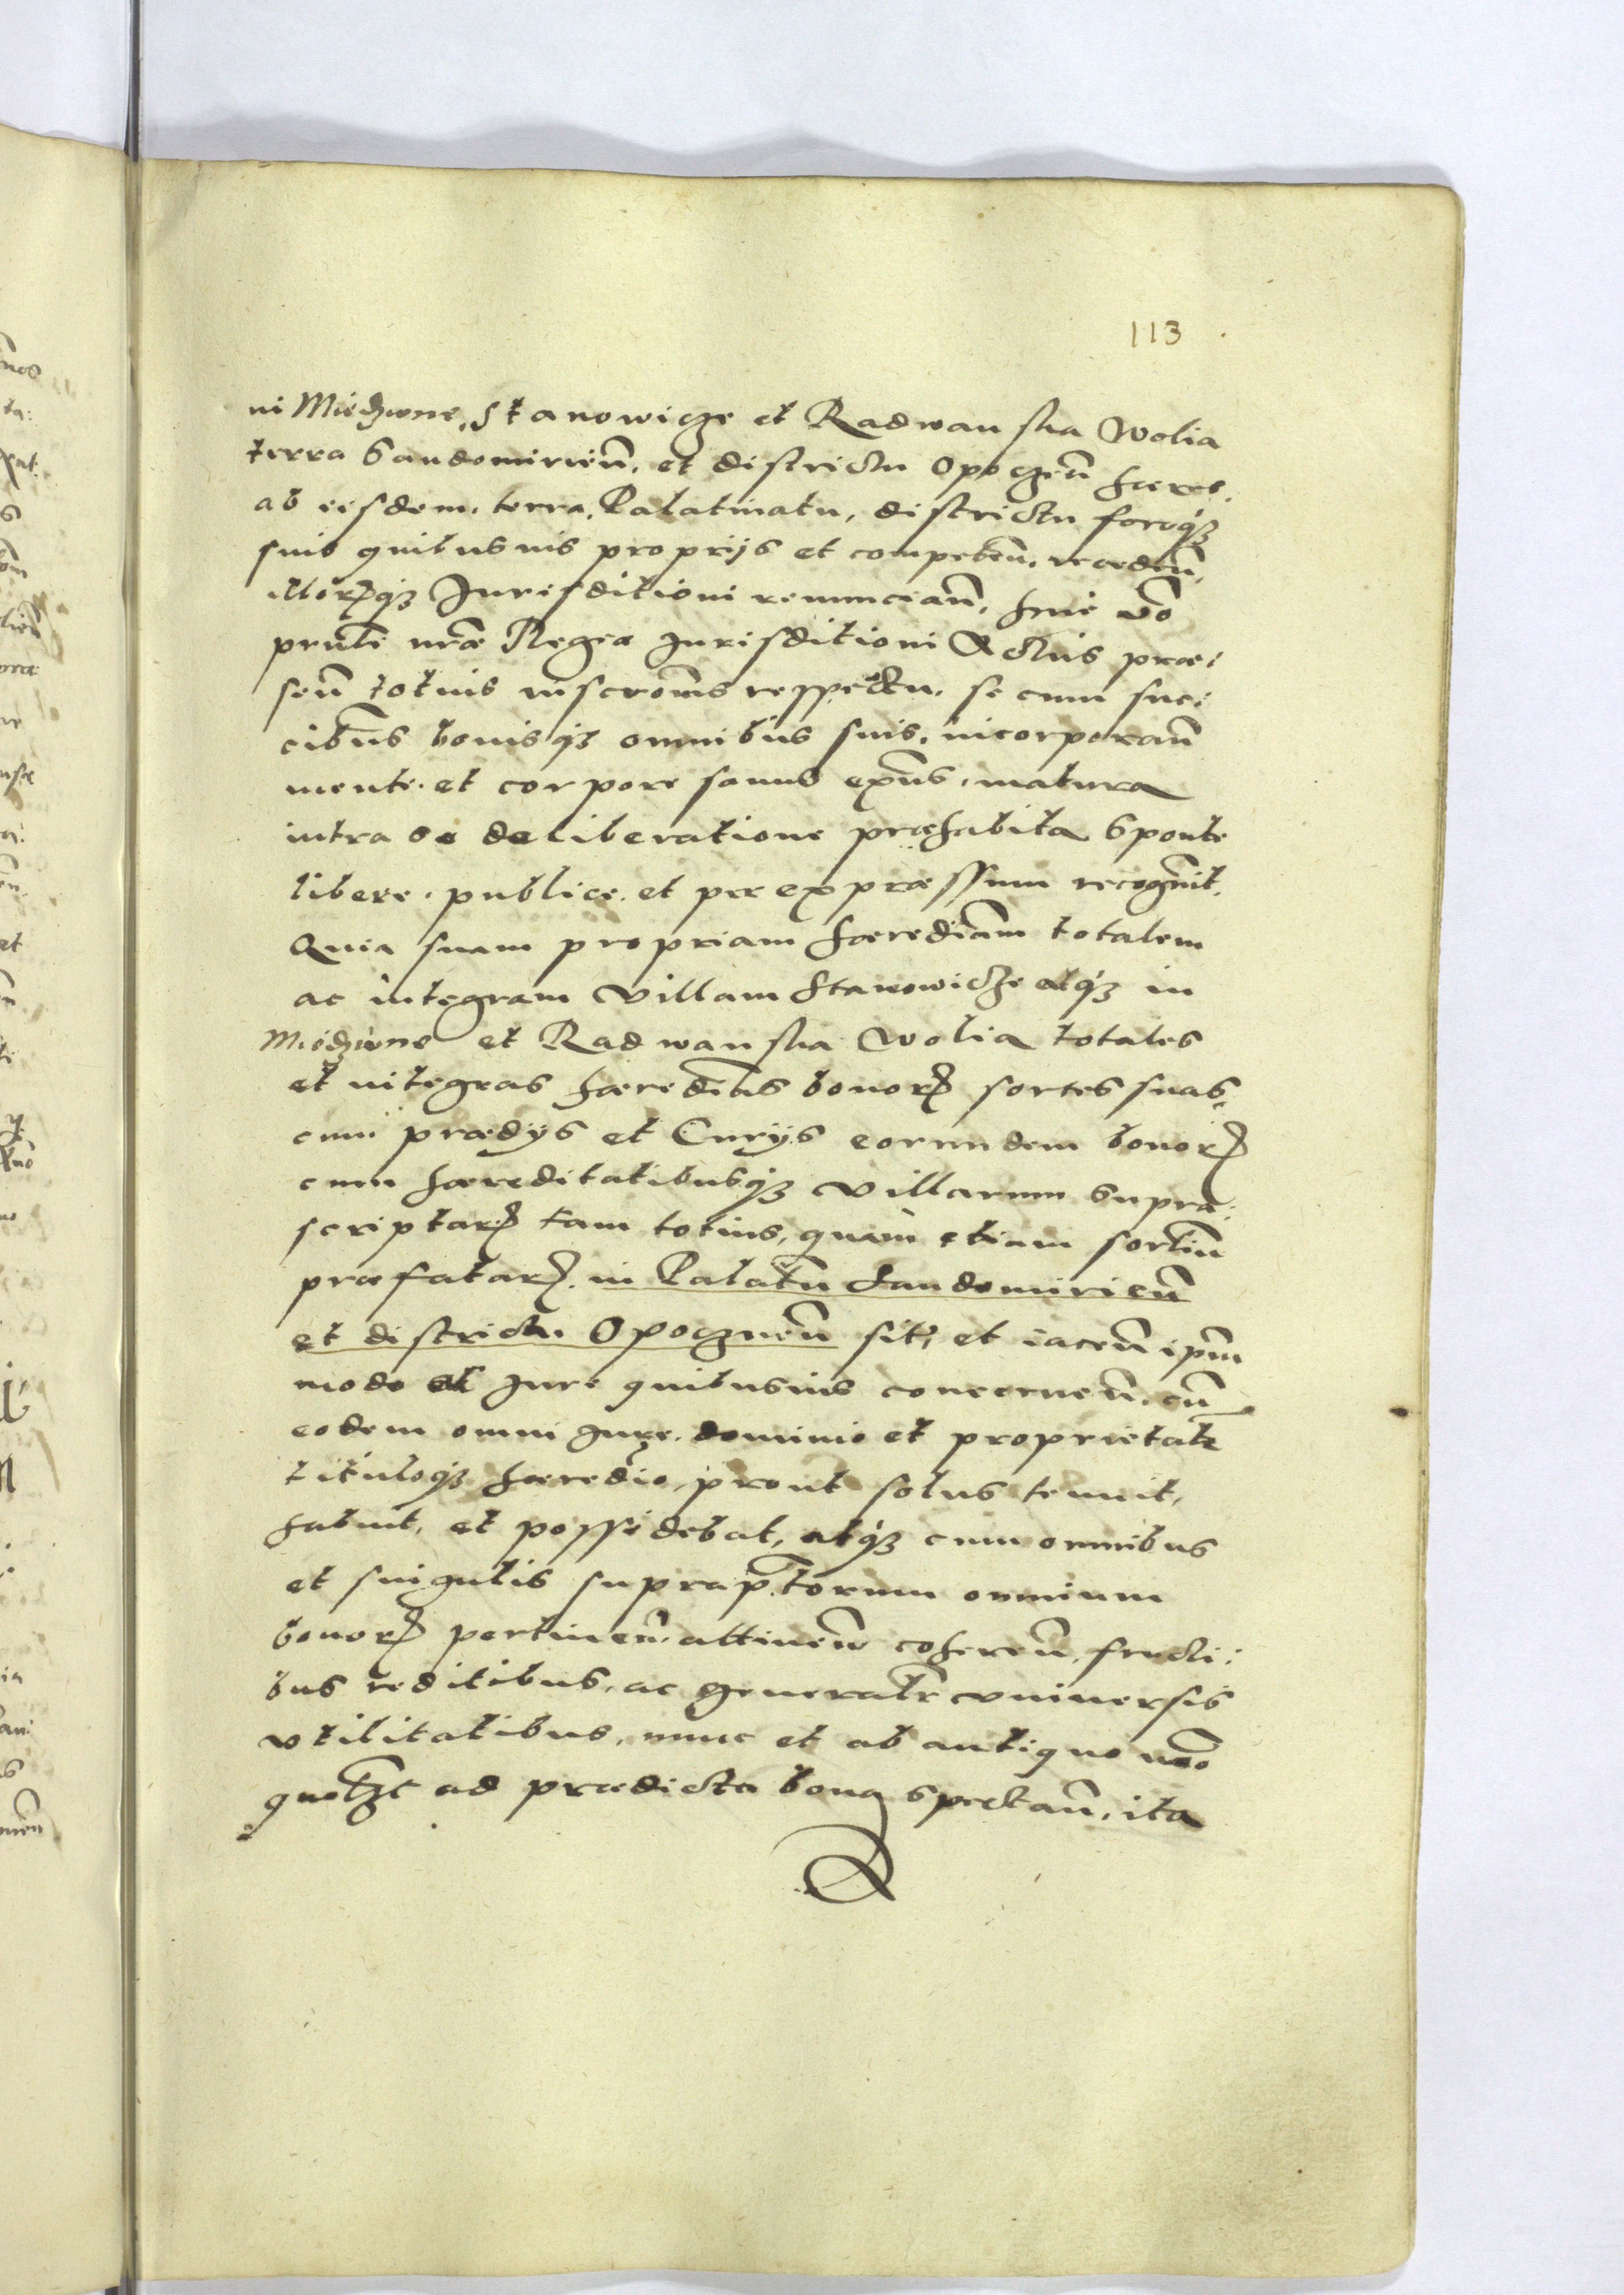 113
in Miedzwne, Stanowicze et Radwanska Wolia
terra Sandomirien̄. et districtu Opoczen̄ hæres.
ab eisdem. terra, Palatinatu, districtu foroq̃
suis quibusuis proprijs et competen̄. receden̄,
illorꝝq̃ Jurisditioni renuncian̄, huic v̄o
pn̄ti nr̄æ Regeæ Jurisditioni Actuis præ:
sen̄ totius inscrōnis respectu. se cum suc:
cibus bonisq̃ omnibus suis. incorporan̄
mente. et corpore sanus exn̄s. matura
intra se deliberatione præhabita sponte
libere. publice. et per expræssum recognuit.
Quia suam propriam hæredia͞m totalem
ac integram Villam Stanowicze atq̃ in
Miedzwne et Radwanska Wolia totales
et integras hæredia͞s bonorꝝ sortes suas,
cum prædijs et Curijs eorundem bonorꝝ
cum hæreditatibusq̃ villarum supra:
scriptarꝝ tam totius, quam etiam sortiu͞
præfatarꝝ. in Palatn̄u Sandomirien̄
et districtu Opocznen̄ sit, et iacen̄ ipm̄
modo et Jure quibusuis concernen̄. cu͞
eodem omni Jure. dominio et proprietate
tituloq̃ hæred̄io, prout solus tenuit,
habuit, et possidebat, atq̃ cum omnibus
et singulis suprap̄torum omnium
bonorꝝ pertinen̄. attinen̄ cohæren̄, fructi:
bus reditibus. ac generatr̄ vniuersis
vtilitatibus. nunc et ab antiquo
ad prædicta bona spectan̄, ita